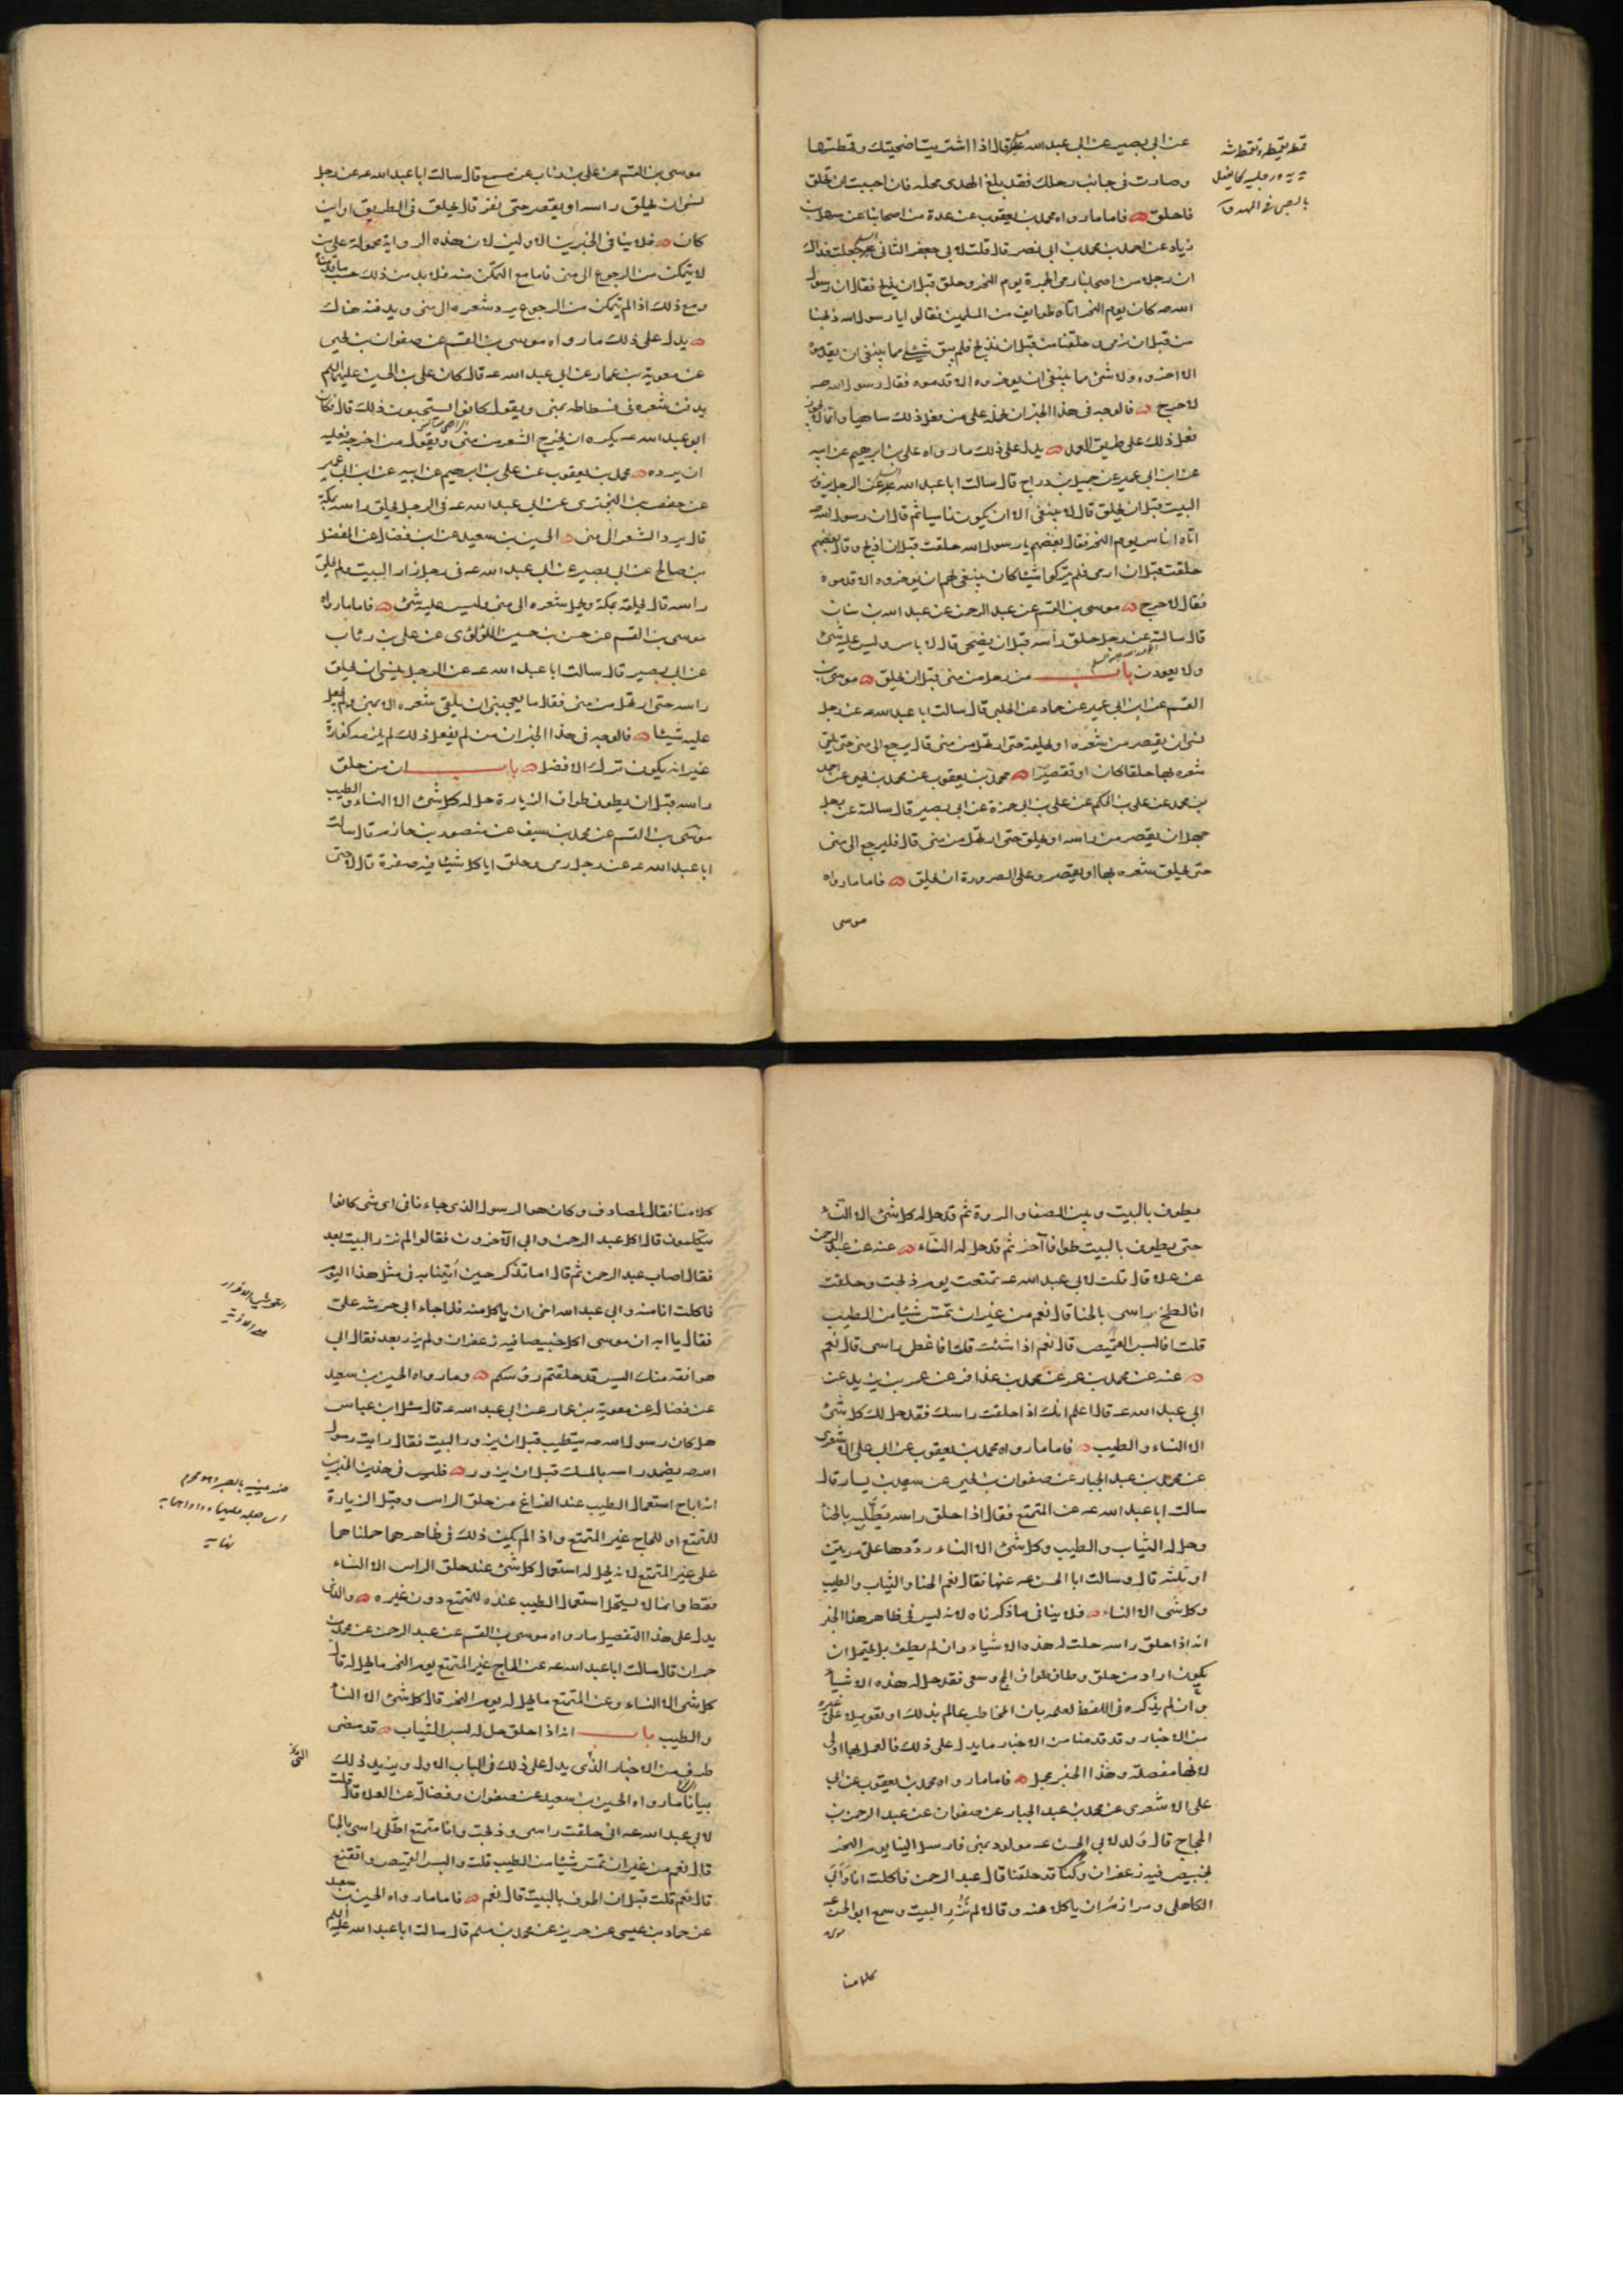 عن ابى بصير عن ابى عبد الله قال اذا اشتريت اضحيتك وقمطتها
وصارت فى جانب رحلك فقد بلغ الهدى محله فان احببت ان تحلق
فاحلق فاما ما رواه محمد بن يعقوب عن عدة من اصحابنا عن سهل بن
زياد عن احمد بن محمد بن ابى نصر قال قلت لابى جعفر الثانى جعلت فداك
ان رجلا من اصحابنا رمى الجمرة يوم النحر وحلق قبل ان يذبح فقال ان رسول
الله صه كان يوم النحر اتاه طوايف من المسلمين فقالوا يا رسول الله ذبحنا
من قبل ان نرمى وحلقنا من قبل ان نذبح فلم يبق شئ مما ينبغى ان يقدموه
الا اخروه ولا شئ مما ينبغى ان يؤخروه الا قدموه فقال رسول الله صه
لا حرج فالوجه فى هذا الخبر ان نحمله على من فعل ذلك ساهيا وانما لا يجوز
فعل ذلك على طريق العمد يدل على ذلك ما رواه على بن ابرهيم عن ابيه
عن ابن ابى عمير عن جميل بن دراج قال سالت ابا عبد الله عن الرجل يزور
البيت قبل ان يحلق قال لا ينبغى الا ان يكون ناسيا ثم قال ان رسول الله صه
اتاه اناس يوم النحر فقال بعضهم يا رسول الله حلقت قبل ان اذبح وقال بعضهم
حلقت قبل ان ارمى فلم يتركوا شيئا كان ينبغى لهم ان يؤخروه الا قدموه
فقال لا حرج موسى بن القسم عن عبد الرحمن عن عبد الله بن سنان
قال سالته عن رجل حلق رأسه قبل ان يضحى قال لا باس وليس عليه شئ
ولا يعودن باب من رحل من منى قبل ان يحلق موسى بن
القسم عن ابن ابى عمير عن حماد عن الحلبى قال سالت ابا عبد الله عه عن رجل
نسى ان يقصر من شعره او يحلقه حتى ارتحل من منى قال يرجع الى منى حتى يلقى
شعره بها حلقا كان او تقصيرا محمد بن يعقوب عن محمد بن يحيى عن احمد
بن محمد عن على بن الحكم عن على بن ابى حمزة عن ابى بصير قال سالته عن رجل
جهل ان يقصر من راسه او يحلق حتى ارتحل من منى قال فليرجع الى منى
حتى يحلق شعره بها او يقصر وعلى الصرورة ان يحلق فاما ما رواه
موسى
موسى بن القسم عن على بن رئاب عن مسمع قال سالت ابا عبد الله عه عن رجل
نسى ان يحلق راسه او يقصر حتى نفر قال يحلق فى الطريق او اين
كان فلا ينافى الخبرين الاولين لان هذه الرواية محمولة على من
لا يتمكن من الرجوع الى منى فاما مع التمكن منه فلا بد من ذلك حسب ما قدمناه
ومع ذلك اذا لم يتمكن من الرجوع يرد شعره الى منى ويدفنه هناك
يدل على ذلك ما رواه موسى بن القسم عن صفوان بن يحيى
عن معوية بن عمار عن ابى عبد الله عه قال كان على بن الحسين عليهما السلم
يدفن شعره فى فسطاطه بمنى ويقول كانوا يستحبون ذلك قال وكان
ابو عبد الله عه يكره ان يخرج الشعر من منى ويقول من اخرجه فعليه
ان يرده محمد بن يعقوب عن على بن ابرهيم عن ابيه عن ابن ابى عمير
عن حفص بن البخترى عن ابى عبد الله عه فى الرجل يحلق راسه بمكة
قال يرد الشعر الى منى الحسين بن سعيد عن ابن فضال عن المفضل
بن صالح عن ابى بصير عن ابى عبد الله عه فى رجل زار البيت ولم يحلق
راسه قال يحلقه بمكة ويحمل شعره الى منى وليس عليه شئ فاما ما رواه
موسى بن القسم عن حسن بن حسين اللؤلؤى عن على بن رئاب
عن ابى بصير قال سالت ابا عبد الله عه عن الرجل ينسى ان يحلق
راسه حتى ارتحل من منى فقال ما يعجبنى ان يلقى شعره الا بمنى ولم يجعل
عليه شيئا فالوجه فى هذا الخبر ان من لم يفعل ذلك لم يلزمه كفارة
غير انه يكون ترك الافضل باب ان من حلق
راسه قبل ان يطوف طواف الزيارة حل له كل شئ الا النساء والطيب
موسى بن القسم عن محمد بن سيف عن منصور بن حازم قال سالت
ابا عبد الله عه عن رجل رمى وحلق ايأكل شيئا فيه صفرة قال لا حتى
يطوف بالبيت وبين الصفا والمروة ثم قد حل له كل شئ الا النساء
حتى يطوف بالبيت طوافا آخر ثم قد حل له النساء عنه عن عبد الرحمن
عن علا قال قلت لابى عبد الله عه تمتعت يوم ذبحت وحلقت
افالطخ راسى بالحنا قال نعم من غير ان تمس شيئا من الطيب
قلت افالبس القميص قال نعم اذا شئت قلت افاغطى راسى قال نعم
عنه عن محمد بن عمر عن محمد بن عذافر عن عمر بن يزيد عن
ابى عبد الله عه قال اعلم انك اذا حلقت راسك فقد حل لك كل شئ
الا النساء والطيب فاما ما رواه محمد بن يعقوب عن ابى على الاشعرى
عن محمد بن عبد الجبار عن صفوان بن يحيى عن سعيد بن يسار قال
سالت ابا عبد الله عه عن المتمتع فقال اذا حلق راسه يطليه بالحنا
وحل له الثياب والطيب وكل شئ الا النساء رددها على مرتين
او ثلثه قال وسالت ابا الحسن عه عنها فقال نعم الحنا والثياب والطيب
وكل شى الا النساء فلا ينافى ما ذكرناه لانه ليس فى ظاهر هذا الخبر
انه اذا حلق راسه حلت له هذه الاشياء وان لم يطف بل يحتمل ان
يكون اراد من حلق وطاف طواف الحج وسعى فقد حل له هذه الاشياء
وان لم يذكره فى اللفظ لعلمه بان المخاطب عالم بذلك او تعويلا على غيره
من الاخبار وقد قدمنا من الاخبار ما يدل على ذلك فالعمل بها اولى
لانها مفصلة وهذا الخبر مجمل فاما ما رواه محمد بن يعقوب عن ابى
على الاشعرى عن محمد بن عبد الجبار عن صفوان عن عبد الرحمن بن
الحجاج قال ولد لابى الحسن عه مولود بمنى فارسل الينا يوم النحر
بخبيص فيه زعفران وكنا قد حلقنا قال عبد الرحمن فاكلت انا وابى
الكاهلى ومرازم ان ياكلا منه وقالا لم نزر البيت وسمع ابو الحسن
موسى
كلامنا
كلامنا فقال لمصادف وكان هو الرسول الذى جاءنا فى اى شى كانوا
يتكلمون قال اكل عبد الرحمن وابى الآخرون فقالوا لم نزر البيت بعد
فقال اصاب عبد الرحمن ثم قال اما تذكر حين أتينا به فى مثل هذا اليوم
فاكلت انا منه وابى عبد الله اخى ان ياكل منه فلما جاء ابى حرشه على
فقال يا ابه ان موسى اكل خبيصا فيه زعفران ولم يزر بعد فقال ابى
هو افقه منك اليس قد حلقتم رؤسكم وما رواه الحسين بن سعيد
عن فضاله عن معوية بن عمار عن ابى عبد الله عه قال سئل ابن عباس
هل كان رسول الله صه يتطيب قبل ان يزور البيت فقال رايت رسول
الله صه يضمد راسه بالمسك قبل ان يزور فليس فى هذين الخبرين
انه اباح استعمال الطيب عند الفراغ من حلق الراس وقبل الزيارة
للمتمتع او للحاج غير المتمتع واذا لم يكن ذلك فى ظاهرهما حملناهما
على غير المتمتع لانه يحل له استعمال كل شئ عند حلق الراس الا النساء
فقط وانما لا يستحل استعمال الطيب عنده للمتمتع دون غيره والذى
يدل على هذا التفصيل ما رواه موسى بن القسم عن عبد الرحمن عن محمد بن
حمران قال سالت ابا عبد الله عه عن الحاج غير المتمتع يوم النحر ما يحل له قال
كل شى الا النساء وعن المتمتع ما يحل له يوم النحر قال كل شئ الا النساء
والطيب باب انه اذا حلق حل له لبس الثياب قد مضى
طرف من الاخبار الذى يدل على ذلك فى الباب الاول ويزيد ذلك
بيانا ما رواه الحسين بن سعيد عن صفوان وفضالة عن العلا قال قلت
لابى عبد الله عه انى حلقت راسى وذبحت وانا متمتع اطلى راسى بالحنا
قال نعم من غير ان تمس شيئا من الطيب قلت والبس القميص واتقنع
قال نعم قلت قبل ان اطوف بالبيت قال نعم فاما ما رواه الحسين بن سعيد
عن حماد بن عيسى عن حريز عن محمد بن مسلم قال سالت ابا عبد الله عليه السلم